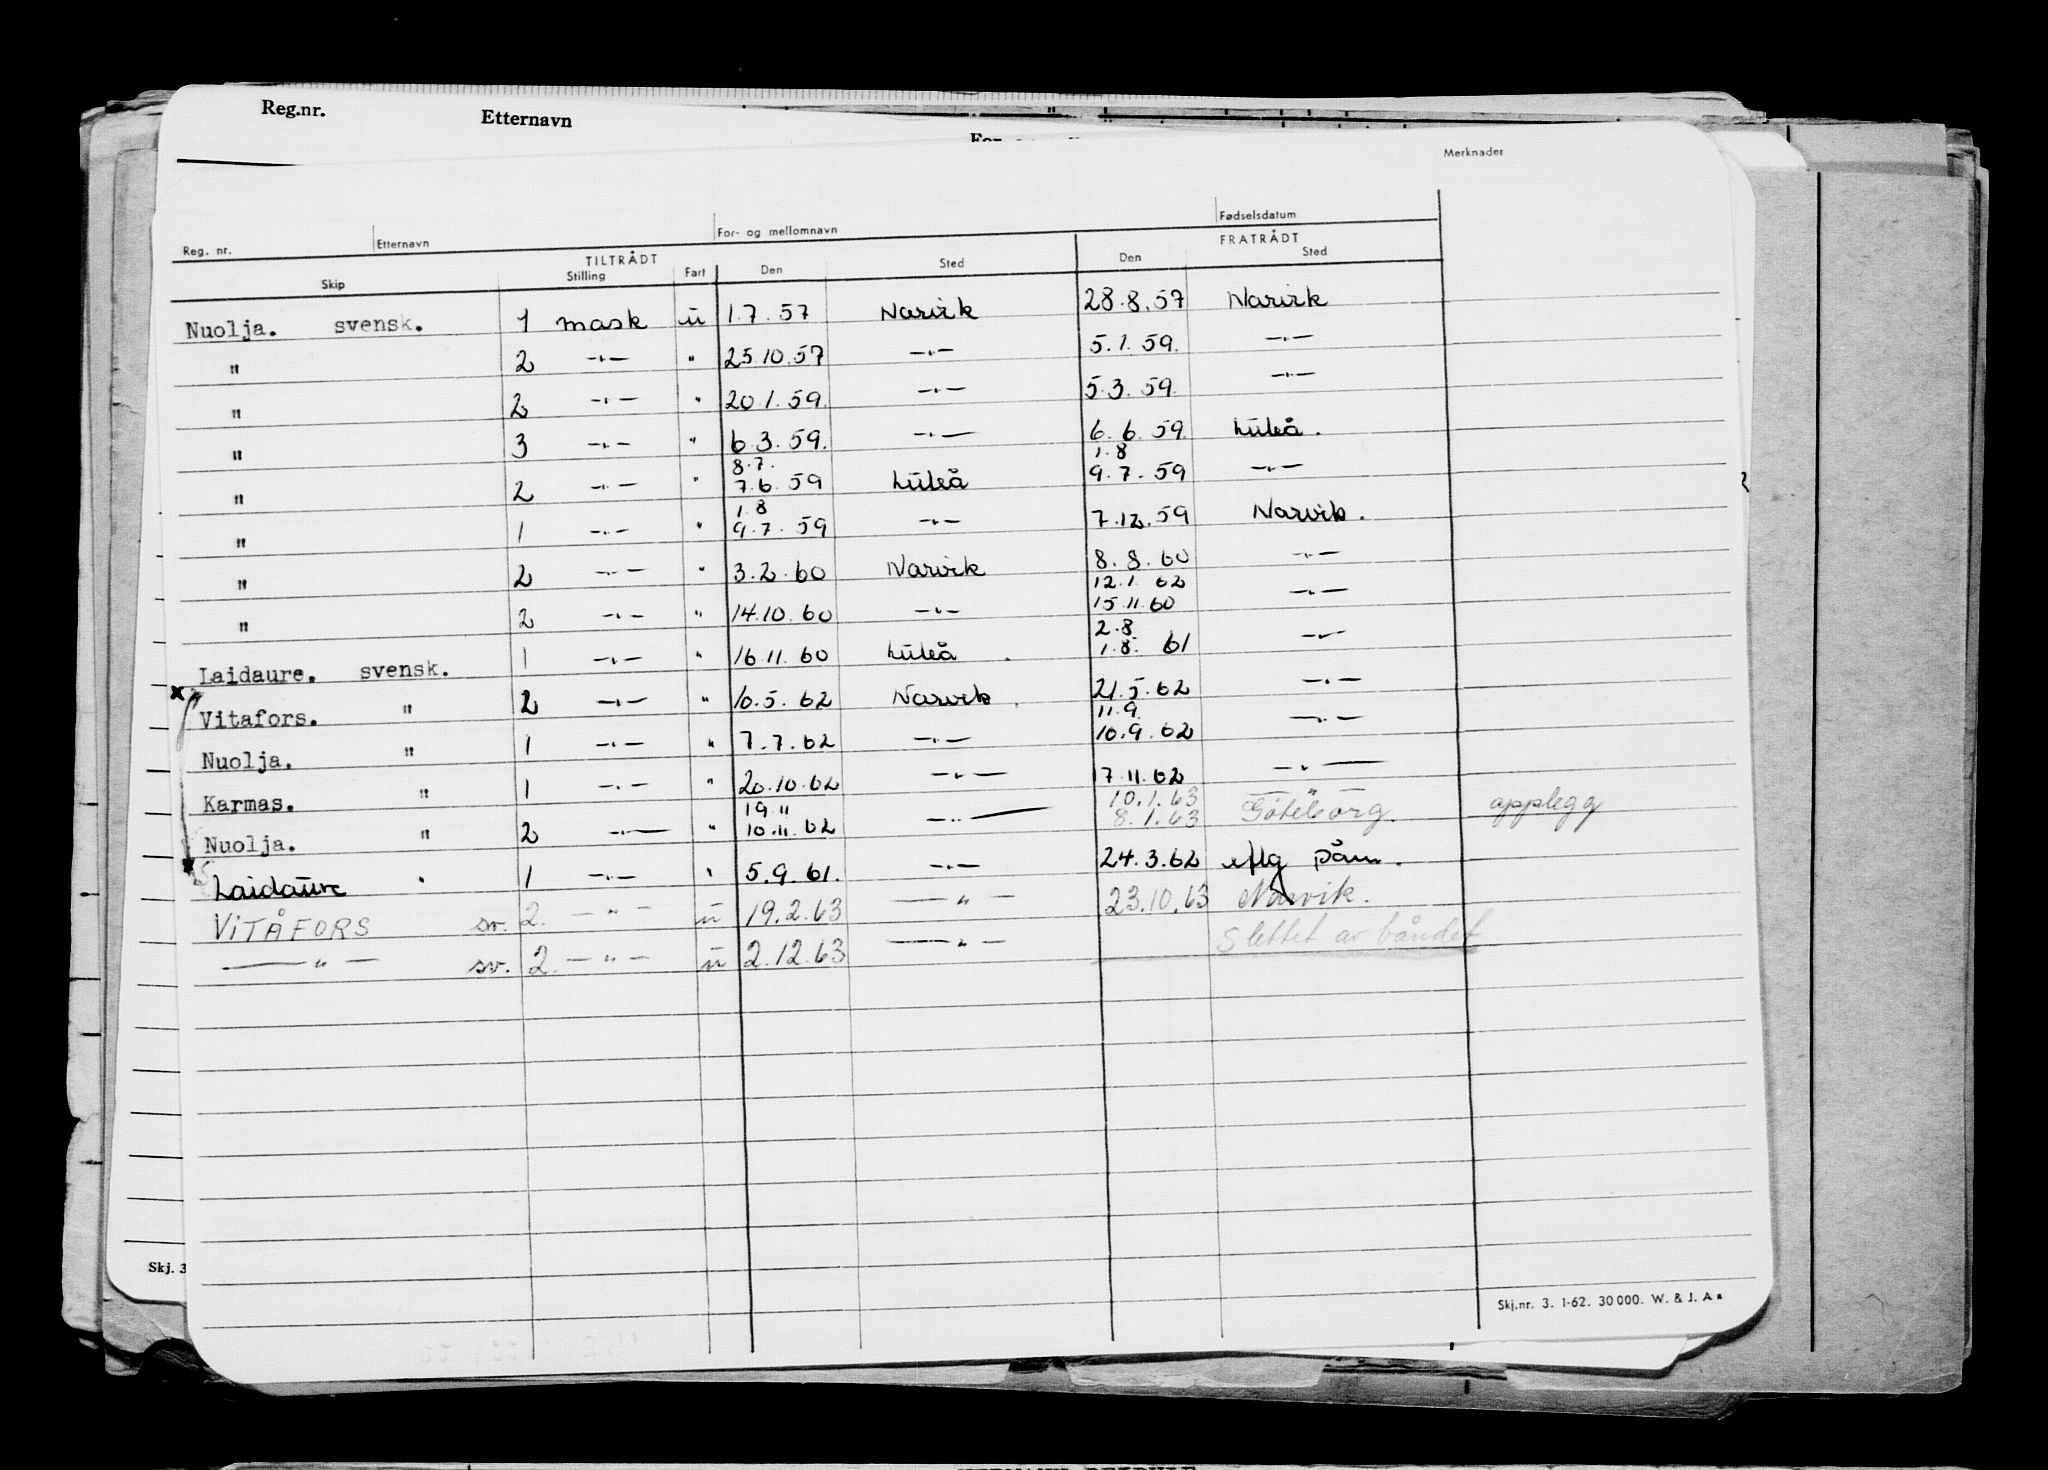 Reg.nr. Etternavn
Merknader
Reg. nr. Etternavn For- og mellomnavn Fødselsdatum
TILTRÅDT FRATRÅDT
Skip Stilling Fart Den Sted Den Sted
Nuolja. svensk. 1 mask ū 1.7.57 Narvik 28.8.57 Narvik
" 2 -"- " 25.10.57 -"- 5.1.59. -"-
" 2 -"- " 20.1.59. -"- 5.3.59. -"-
" 3 -"- " 6.3.59. -"- 6.6.59. Luleå.
8.7. 1.8
" 2 -"- " 7.6.59 Luleå 9.7.59 -"-
1.8
" 1 -"- " 9.7.59 -"- 7.12.59 Narvik.
" 2 -"- " 3.2.60 Narvik 8.8.60 -"-
12.1.62
" 2 -"- " 14.10.60 -"- 15.11.60 -"-
2.8.
Laidaure. svensk. 1 -"- " 16.11.60 Luleå 1.8. 61 -"-
Vitafors. " 2 -"- " 16.5.62 Narvik. 21.5.62 -"-
11.9.
Nuolja. " 1 -"- " 7.7.62 -"- 10.9.62 -"-
Karmas. " 1 -"- " 20.10.62 -"- 17.11.62 -"-
19.11 10.1.63 -"-
Nuolja. " 2 -"- " 10.11.62 -"- 8.1.63 Göteborg. applegg
Laidaure " 1 -"- " 5.9.61. -"- 24.3.62 iflg påm.
VITÅFORS sv. 2. -"- ū 19.2.63 -"- 23.10.63 Narvik.
-"- sv. 2. -"- ū 2.12.63 -"- Slettet av båndet
Skj. 3
Skj.nr. 3. 1-62. 30 000. W. & J. A s